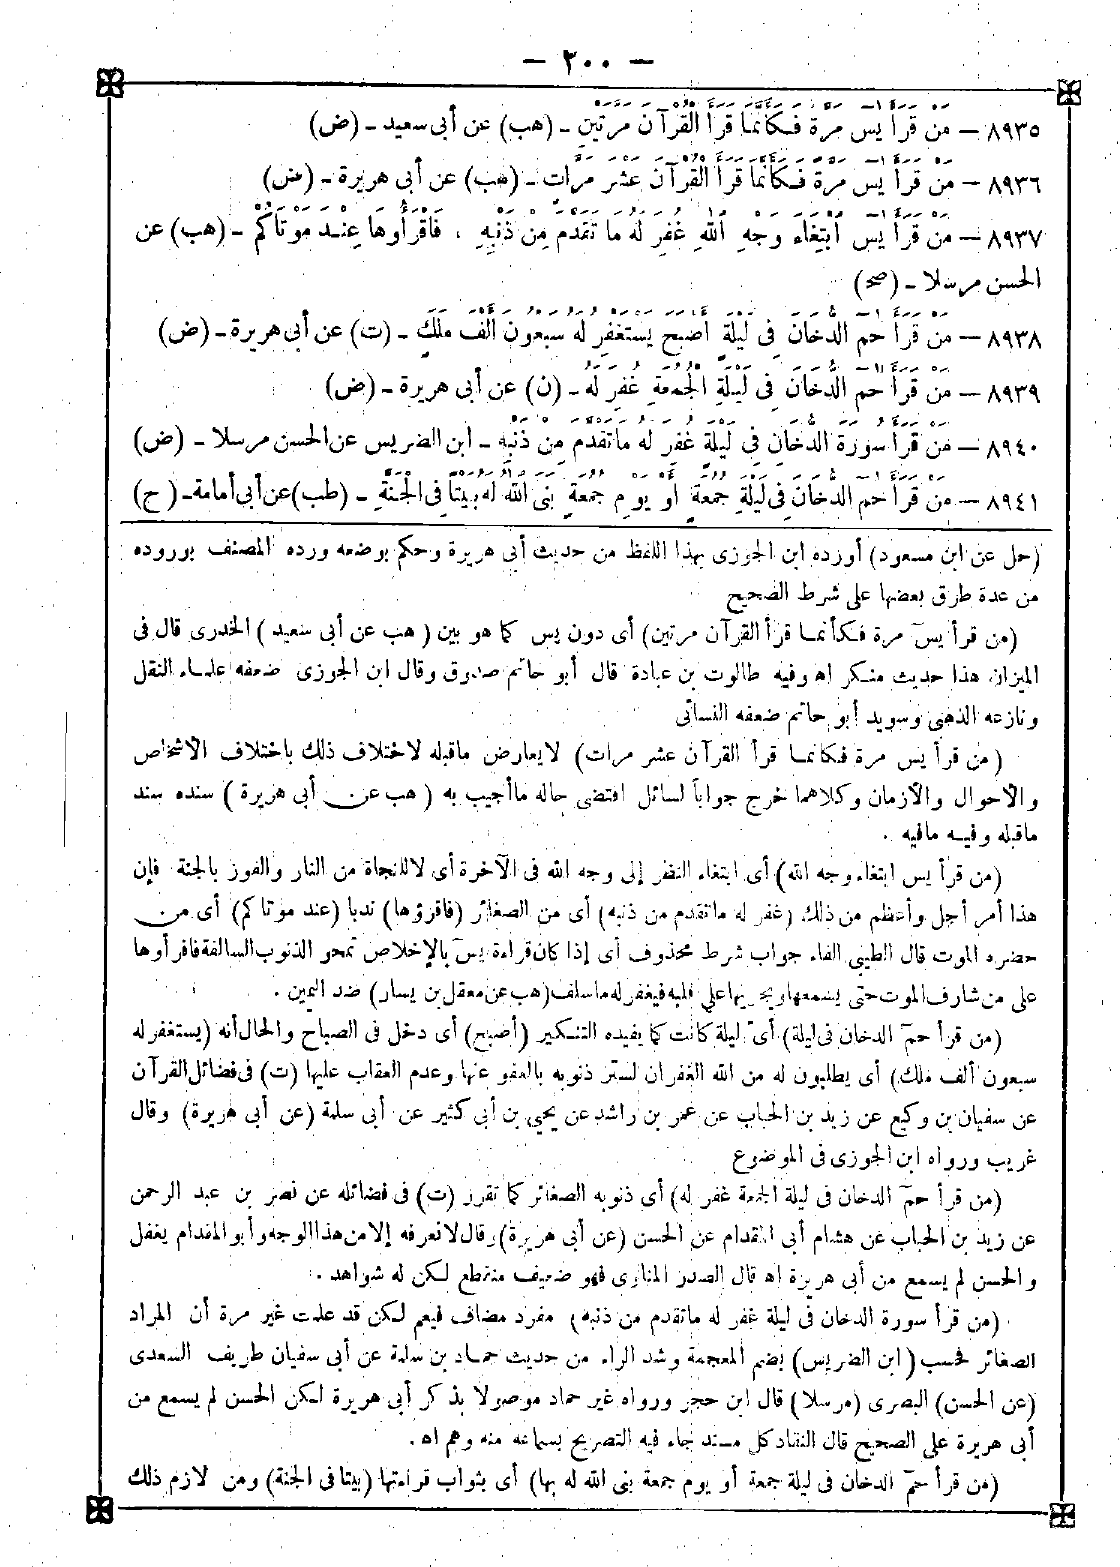 — ٢٠٠ —
٨٩٣٥ — مَنْ قَرَأَ يٰسٓ مَرَّةً فَكَأَنَّمَا قَرَأَ الْقُرْآنَ مَرَّتَيْنِ - (هب) عن أبى سعيد - (ض)
٨٩٣٦ — مَنْ قَرَأَ يٰسٓ مَرَّةً فَكَأَنَّمَا قَرَأَ الْقُرْآنَ عَشْرَ مَرَّاتٍ - (هب) عن أبى هريرة - (ض)
٨٩٣٧ — مَنْ قَرَأَ يٰسٓ ابْتِغَاءَ وَجْهِ اللّٰهِ غُفِرَ لَهُ مَا تَقَدَّمَ مِنْ ذَنْبِهِ ، فَاقْرَأُوهَا عِنْدَ مَوْتَاكُمْ - (هب) عن
الحسن مرسلا - (صح)
٨٩٣٨ — مَنْ قَرَأَ حٰمٓ الدُّخَانَ فِى لَيْلَةٍ أَصْبَحَ يَسْتَغْفِرُ لَهُ سَبْعُونَ أَلْفَ مَلَكٍ - (ت) عن أبى هريرة - (ض)
٨٩٣٩ — مَنْ قَرَأَ حٰمٓ الدُّخَانَ فِى لَيْلَةِ الْجُمُعَةِ غُفِرَ لَهُ - (ن) عن أبى هريرة - (ض)
٨٩٤٠ — مَنْ قَرَأَ سُورَةَ الدُّخَانِ فِى لَيْلَةٍ غُفِرَ لَهُ مَا تَقَدَّمَ مِنْ ذَنْبِهِ - ابن الضريس عن الحسن مرسلا - (ض)
٨٩٤١ — مَنْ قَرَأَ حٰمٓ الدُّخَانَ فِى لَيْلَةِ جُمُعَةٍ أَوْ يَوْمِ جُمُعَةٍ بَنَى اللّٰهُ لَهُ بَيْتًا فِى الْجَنَّةِ - (طب) عن أبى أمامة - (ح)
(حل عن ابن مسعود) أورده ابن الجوزى بهذا اللفظ من حديث أبى هريرة وحكم بوضعه ورده المصنف بوروده
من عدة طرق بعضها على شرط الصحيح
(من قرأ يسٓ مرة فكأنما قرأ القرآن مرتين) أى دون يس كما هو بين (هب عن أبى سعيد) الخدرى قال فى
الميزان هذا حديث منكر اه وفيه طالوت بن عبادة قال أبو حاتم صدوق وقال ابن الجوزى ضعفه علماء النقل
ونازعه الذهبى وسويد أبو حاتم ضعفه النسائى
(من قرأ يس مرة فكانما قرأ القرآن عشر مرات) لا يعارض ماقبله لاختلاف ذلك باختلاف الاشخاص
والاحوال والأزمان وكلاهما خرج جواباً لسائل اقتضى حاله ماأجيب به (هب عن أبى هريرة) سنده سند
ماقبله وفيه مافيه .
(من قرأ يس ابتغاء وجه الله) أى ابتغاء النظر إلى وجه الله فى الآخرة أى لاللنجاة من النار والفوز بالجنة فإن
هذا أمر أجل وأعظم من ذلك (غفر له ماتقدم من ذنبه) أى من الصغائر (فاقرؤها) ندبا (عند موتاكم) أى من
حضره الموت قال الطيبى الفاء جواب شرط محذوف أى إذا كان قراءة يسٓ بالإخلاص تمحو الذنوب السالفة فاقرأوها
على من شارف الموت حتى يسمعها ويجريها على قلبه فيغفر له ماسلف (هب عن معقل بن يسار) ضد اليمين .
(من قرأ حمٓ الدخان فى ليلة) أىّ ليلة كانت كما يفيده التنكير (أصبح) أى دخل فى الصباح والحال أنه (يستغفر له
سبعون ألف ملك) أى يطلبون له من الله الغفران لستر ذنوبه بالعفو عنها وعدم العقاب عليها (ت) فى فضائل القرآن
عن سفيان بن وكيع عن زيد بن الحباب عن عمر بن راشد عن يحيى بن أبى كثير عن أبى سلمة (عن أبى هريرة) وقال
غريب ورواه ابن الجوزى فى الموضوع
(من قرأ حمٓ الدخان فى ليلة الجمعة غفر له) أى ذنوبه الصغائر كما تقرر (ت) فى فضائله عن نصر بن عبد الرحمن
عن زيد بن الحباب عن هشام أبى المقدام عن الحسن (عن أبى هريرة) وقال لا نعرفه إلا من هذا الوجه وأبو المقدام يغفل
والحسن لم يسمع من أبى هريرة اه قال الصدر المناوى فهو ضعيف منقطع لكن له شواهد .
(من قرأ سورة الدخان فى ليلة غفر له ماتقدم من ذنبه) مفرد مضاف فيعم لكن قد علمت غير مرة أن المراد
الصغائر فحسب (ابن الضريس) بضم المعجمة وشد الراء من حديث حماد بن سلمة عن أبى سفيان طريف السعدى
(عن الحسن) البصرى (مرسلا) قال ابن حجر ورواه غير حماد موصولا بذكر أبى هريرة لكن الحسن لم يسمع من
أبى هريرة على الصحيح قال النقاد كل مسند جاء فيه التصريح بسماعه منه وهم اه .
(من قرأ حمٓ الدخان فى ليلة جمعة أو يوم جمعة بنى الله له بها) أى بثواب قراءتها (بيتا فى الجنة) ومن لازم ذلك